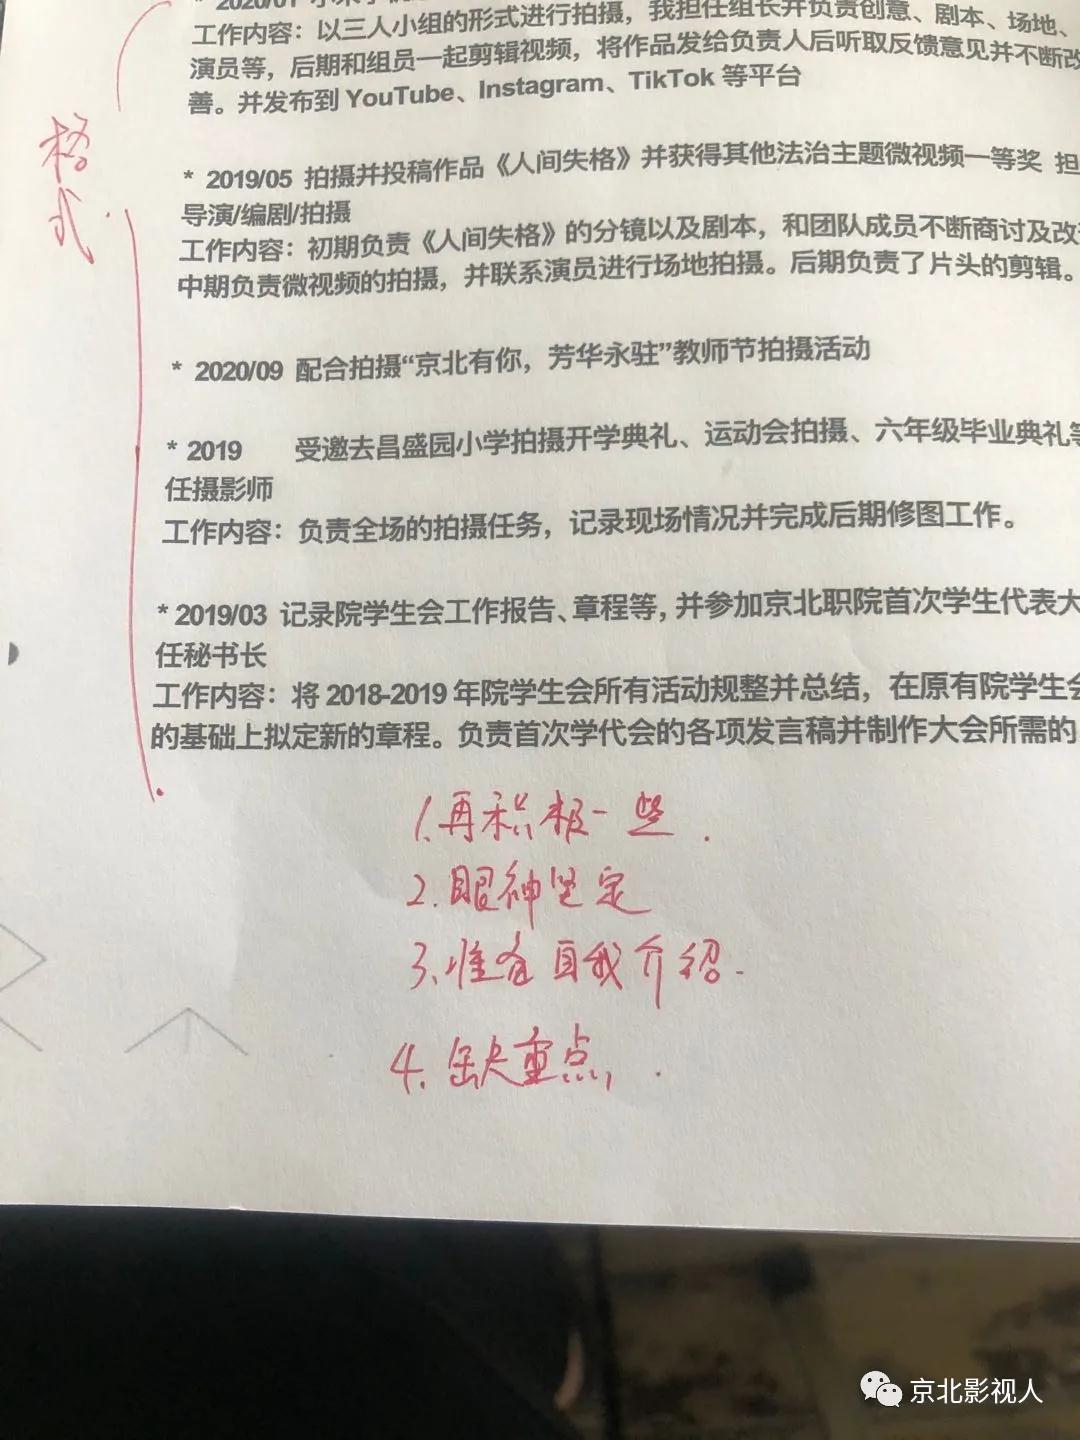 * 2020/01
工作内容：以三人小组的形式进行拍摄，我担任组长并负责创意、剧本、场地、
演员等，后期和组员一起剪辑视频，将作品发给负责人后听取反馈意见并不断改
善。并发布到 YouTube、Instagram、TikTok 等平台
格式
* 2019/05 拍摄并投稿作品《人间失格》并获得其他法治主题微视频一等奖 担
导演/编剧/拍摄
工作内容：初期负责《人间失格》的分镜以及剧本，和团队成员不断商讨及改
中期负责微视频的拍摄，并联系演员进行场地拍摄。后期负责了片头的剪辑。
* 2020/09 配合拍摄“京北有你，芳华永驻”教师节拍摄活动
* 2019 受邀去昌盛园小学拍摄开学典礼、运动会拍摄、六年级毕业典礼等
任摄影师
工作内容：负责全场的拍摄任务，记录现场情况并完成后期修图工作。
* 2019/03 记录院学生会工作报告、章程等，并参加京北职院首次学生代表大
任秘书长
工作内容：将 2018-2019 年院学生会所有活动规整并总结，在原有院学生会
的基础上拟定新的章程。负责首次学代会的各项发言稿并制作大会所需的
1.再积极一些.
2.眼神坚定
3.准备自我介绍.
4.缺重点,.
京北影视人